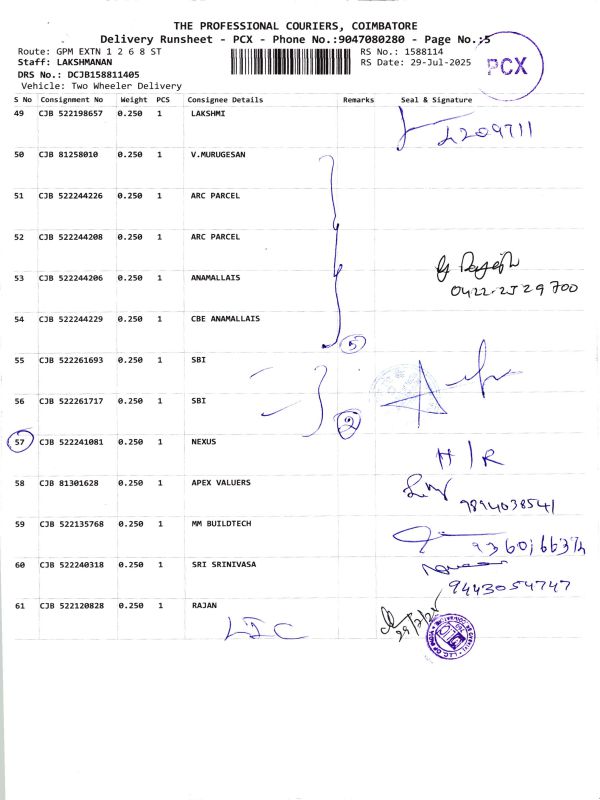 THE PROFESSIONAL COURIERS, COIMBATORE
Delivery Runsheet - PCX - Phone No.:9047080280 - Page No.:5
Route: GPM EXTN 1 2 6 8 ST
RS No.: 1588114
Staff: LAKSHMANAN
RS Date: 29-Jul-2025
PCX
DRS No.: DCJB158811405
Vehicle: Two Wheeler Delivery
S No Consignment No Weight PCS Consignee Details Remarks Seal & Signature
49 CJB 522198657 0.250 1 LAKSHMI
50 CJB 81258010 0.250 1 V.MURUGESAN
51 CJB 522244226 0.250 1 ARC PARCEL
52 CJB 522244208 0.250 1 ARC PARCEL
53 CJB 522244206 0.250 1 ANAMALLAIS
0422-2529700
54 CJB 522244229 0.250 1 CBE ANAMALLAIS
5
55 CJB 522261693 0.250 1 SBI
56 CJB 522261717 0.250 1 SBI
2
57 CJB 522241081 0.250 1 NEXUS
H/R
58 CJB 81301628 0.250 1 APEX VALUERS
9894038541
59 CJB 522135768 0.250 1 MM BUILDTECH
60 CJB 522240318 0.250 1 SRI SRINIVASA
9443054747
61 CJB 522120828 0.250 1 RAJAN
LIC
29/7/25